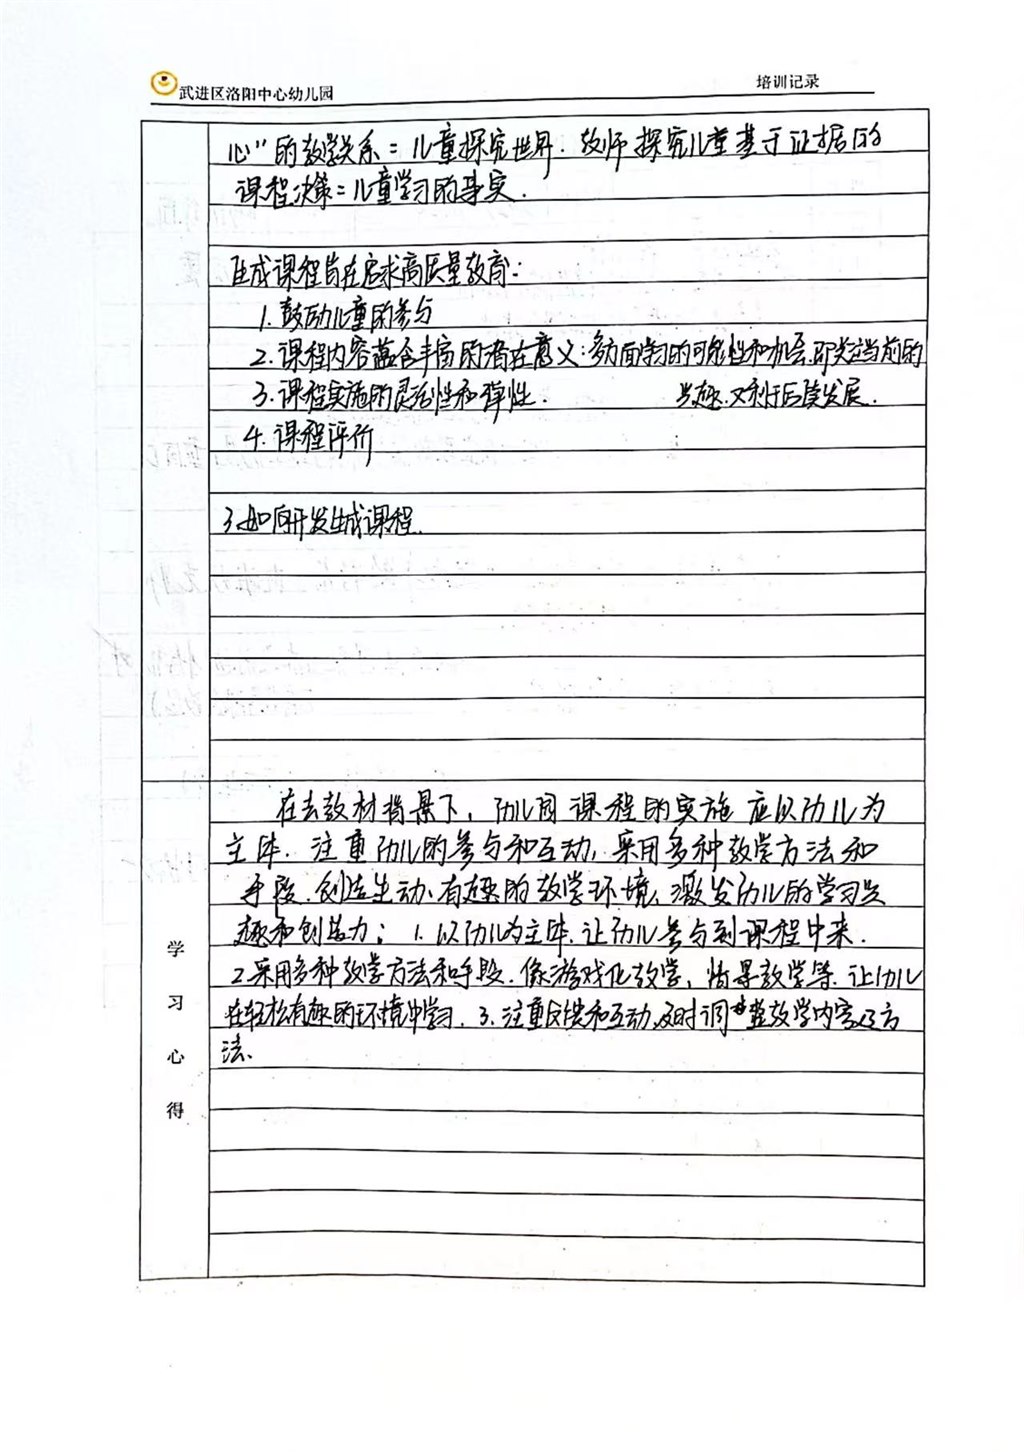 武进区洛阳中心幼儿园
培训记录
心"的教学关系=儿童探究世界.教师探究儿童基于证据的
课程决策=儿童学习的事实.
生成课程旨在追求高质量教育:
1.鼓励儿童的参与
2.课程内容蕴含丰富的潜在意义:多方面学习的可能性和机会.即关注当前的
3.课程实施的灵活性和弹性. 兴趣.又利于后续发展.
4.课程评价
3.如何开发生成课程.
在去教材背景下,幼儿园课程的实施应以幼儿为
主体.注重幼儿的参与和互动,采用多种教学方法和
手段.创造生动、有趣的教学环境、激发幼儿的学习兴
趣和创造力;1.以幼儿为主体.让幼儿参与到课程中来.
2.采用多种教学方法和手段.像游戏化教学,情景教学等.让幼儿
在轻松有趣的环境中学习.3.注重反馈和互动,及时调整教学内容及方
法.
学习心得